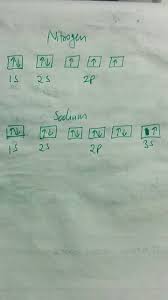 Nitrogen
↑↓ ↑↓ ↑ ↑ ↑
1S 2S 2P
Sodium
↑↓ ↑↓ ↑↓ ↑↓ ↑↓ ↑
1S 2S 2P 3S